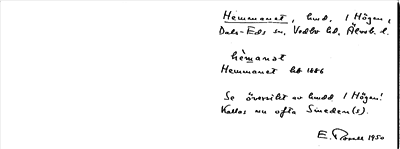 Hemmanet, hmd, i Högen,
Dals-Eds sn, Vedbo hd, Älvsb. l.
hèmanət
Hemmanet hb 1686
Se översikt av hmdd i Högen!
Kallas nu ofta Smeden(s).
E. 1950